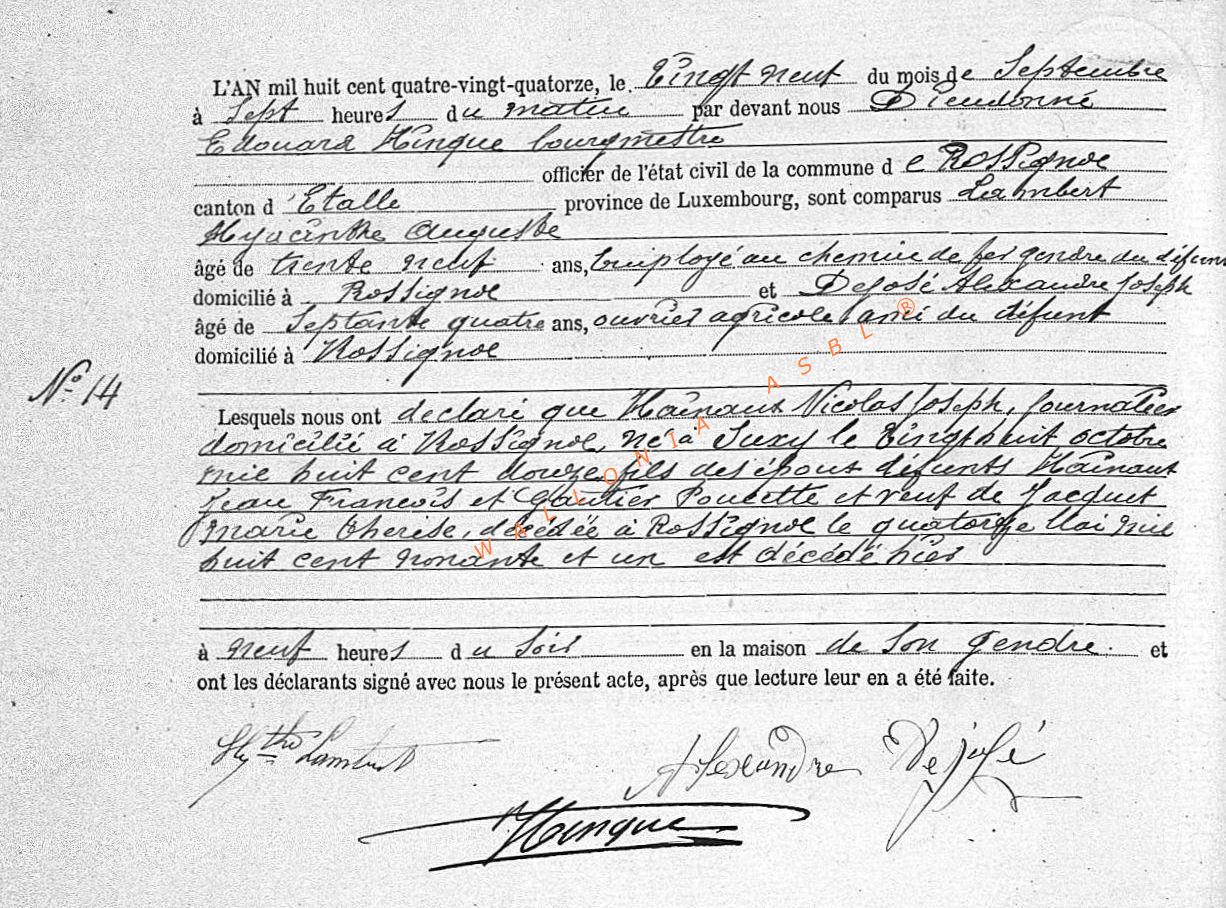 L'AN mil huit cent quatre-vingt-quatorze, le Vingt neuf du mois de Septembre
à Sept heures du matin par devant nous Dieudonné
Edouard Hinque bourgmestre
officier de l'état civil de la commune de Rossignol
canton d'Etalle province de Luxembourg, sont comparus Lambert
Hyacinthe Auguste
âgé de trente neuf ans, Employé au chemin de fer gendre du défunt
domicilié à Rossignol et Dejosé Alexandre Joseph
âgé de Septante quatre ans, ouvrier agricole ami du défunt
domicilié à Rossignol
N° 14
Lesquels nous ont declaré que Hainaux Nicolas Joseph, Journalier
domicilié à Rossignol, né à Suxy le Vingt huit octobre
mil huit cent douze fils des époux défunts Hainaux
Jean François et Gautier Poncette et veuf de Jacquet
Marie Therese, décédée à Rossignol le quatorze Mai mil
huit cent nonante et un est décédé hier
à neuf heures du Soir en la maison de Son gendre. et
ont les déclarants signé avec nous le présent acte, après que lecture leur en a été faite.
Hythe Lambert Alexandre Dejosé
Hinque
WALLONIA ASBL ®